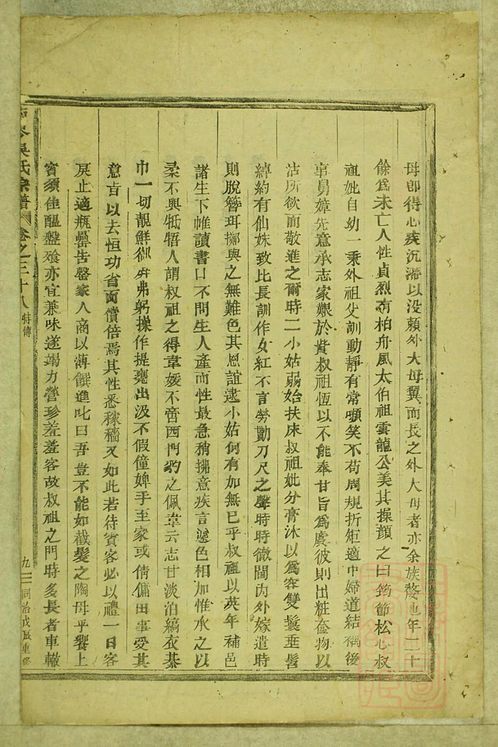 母卽得心疾沉滯以没賴外大母翼而長之外大母者亦余族嫠也年二十
餘爲未亡人性貞烈有柏舟風太伯祖雲龍公美其操顔之曰筠節松心叔
祖妣自幼一秉外祖父訓動靜有常嚬笑不苟周規折矩適中婦道結褵後
事舅嫜先意承志家艱於貲叔祖恆以不能奉甘旨爲慶彼則出粧奩物以
沽所欲而敬進之爾時二小姑弱始扶床叔祖妣分膏沐以爲容雙鬟垂髫
綽約有仙姝致比長訓作女紅不言勞勩刀尺之聲時時徹閫内外嫁遣時
則脫簪珥擲與之無難色其恩誼逮小姑何有加無已乎叔祖以英年補邑
諸生下帷讀書口不問生人產而性最急稍擁意疾言遽色相加惟水之以
柔不與牴牾人謂叔祖之得韋媛不啻西門豹之佩韋云志甘淡泊縞衣綦
巾一切靚鮮御 弗躬操作提甕出汲不假僮婢手至家或倩傭田事受其
意旨以去恒功省而償倍焉其性悉稼穡又如此若待賓客必以禮一日客
戾止適瓶罍告罄家人商以薄饌進叱曰吾豈不能如截髮之陶母乎饗上
賓須佳醖盤飧亦宜兼味遂竭力營珍羞羞客故叔祖之門時多長者車轍
吳氏宗譜 卷之三十八 特傳
九 同治戊辰重修